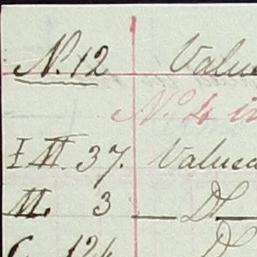 N. 12 Value
N. 4 in
I M. 37. Valued
M. 3 — D. —
C. 124 D.